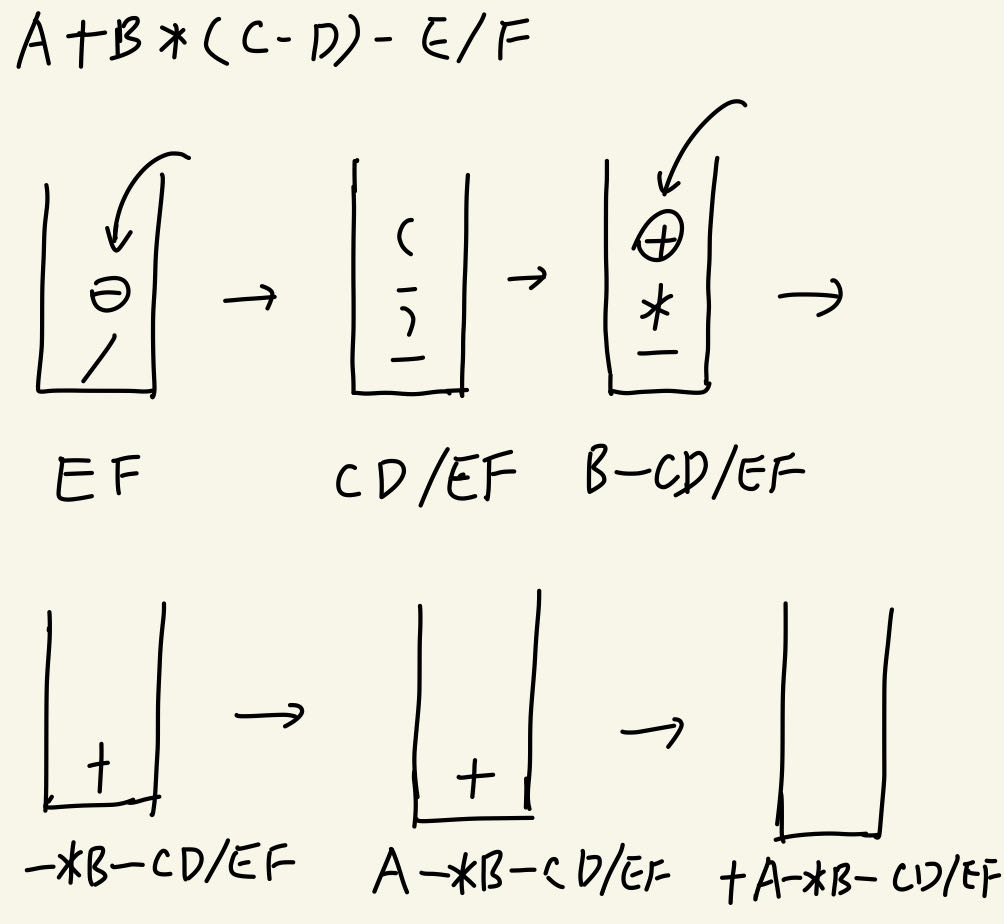 A+B*(C-D)-E/F
⊖
/
EF
(
-
)
-
CD/EF
⊕
*
-
B-CD/EF
+
-*B-CD/EF
+
A-*B-CD/EF
+A-*B-CD/EF